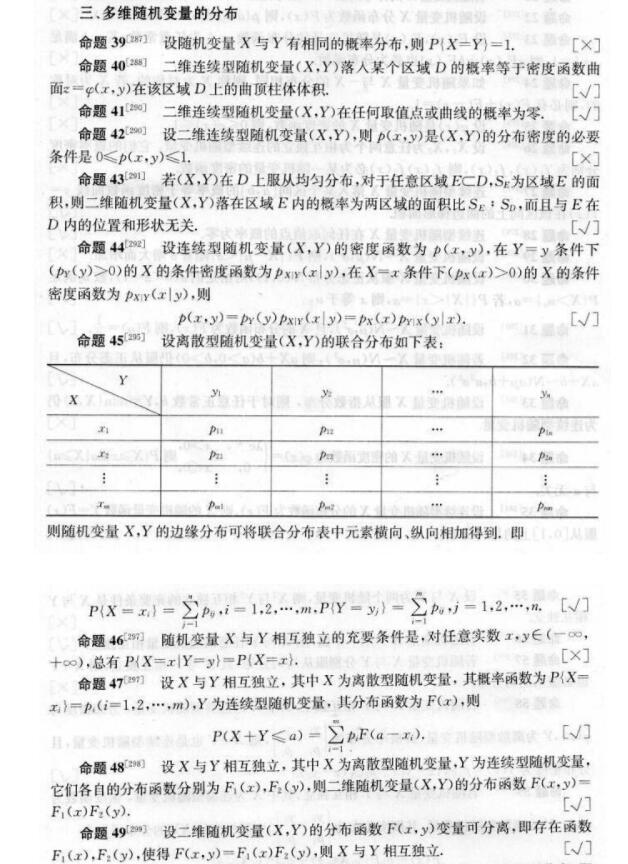 三、多维随机变量的分布
命题 39[287] 设随机变量 X 与 Y 有相同的概率分布,则 P{X=Y}=1. [×]
命题 40[288] 二维连续型随机变量(X,Y)落入某个区域 D 的概率等于密度函数曲
面z=φ(x,y)在该区域 D 上的曲顶柱体体积. [√]
命题 41[290] 二维连续型随机变量(X,Y)在任何取值点或曲线的概率为零. [√]
命题 42[290] 设二维连续型随机变量(X,Y),则 p(x,y)是(X,Y)的分布密度的必要
条件是 0≤p(x,y)≤1. [×]
命题 43[291] 若(X,Y)在 D 上服从均匀分布,对于任意区域 E⊂D,S_E为区域 E 的面
积,则二维连续型随机变量(X,Y)落在区域 E 内的概率为两区域的面积比 S_E : S_D,而且与 E 在
D 内的位置和形状无关. [√]
命题 44[292] 设连续型随机变量(X,Y)的密度函数为 p(x,y),在 Y=y 条件下
(p_Y(y)>0)的 X 的条件密度函数为 p_{X|Y}(x|y),在 X=x 条件下(p_X(x)>0)的 X 的条件
密度函数为 p_{X|Y}(x|y),则
p(x,y)=p_Y(y)p_{X|Y}(x|y)=p_X(x)p_{Y|X}(y|x). [√]
命题 45[295] 设离散型随机变量(X,Y)的联合分布如下表:
Y
X y₁ y₂ ⋯ yₙ
x₁ p₁₁ p₁₂ ⋯ p₁ₙ
x₂ p₂₁ p₂₂ ⋯ p₂ₙ
⋮ ⋮ ⋮ ⋮
x_m p_{m1} p_{m2} ⋯ p_{mn}
则随机变量 X,Y 的边缘分布可将联合分布表中元素横向、纵向相加得到. 即
P{X=x_i}=∑_{j=1}^{n} p_{ij},i=1,2,⋯,m,P{Y=y_j}=∑_{i=1}^{m} p_{ij},j=1,2,⋯,n. [√]
命题 46[297] 随机变量 X 与 Y 相互独立的充要条件是,对任意实数 x,y∈(−∞,
+∞),总有 P{X=x|Y=y}=P{X=x}. [×]
命题 47[297] 设 X 与 Y 相互独立,其中 X 为离散型随机变量,其概率函数为 P{X=
x_i}=p_i(i=1,2,⋯,m),Y 为连续型随机变量,其分布函数为 F(x),则
P(X+Y≤a)=∑_{i=1}^{m} p_iF(a−x_i). [√]
命题 48[298] 设 X 与 Y 相互独立,其中 X 为离散型随机变量,Y 为连续型随机变量,
它们各自的分布函数分别为 F₁(x),F₂(y),则二维随机变量(X,Y)的分布函数 F(x,y)=
F₁(x)F₂(y). [√]
命题 49[299] 设二维随机变量(X,Y)的分布函数 F(x,y)变量可分离,即存在函数
F₁(x),F₂(y),使得 F(x,y)=F₁(x)F₂(y),则 X 与 Y 相互独立. [√]